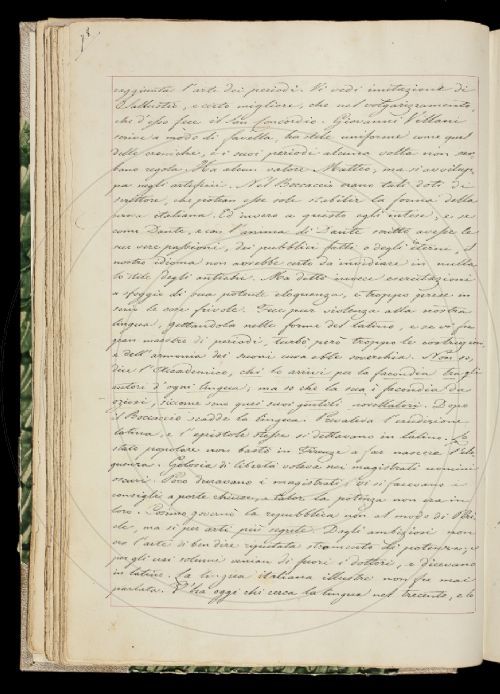 raggiunta l'arte dei periodi. Vi vedi imitazione di
Sallustio, e certo migliore, che nel volgarizzamento,
che d'esso fece il San Concordio. Giovanni Villani
scrive a modo di favella, ha stile uniforme come quel
delle croniche, e i suoi periodi alcuna volta non ser
bano regola. Ha alcun valore Matteo, ma si avvilup
pa negli artefizii. Nel Boccaccio erano tali doti di
scrittore, che potean esse sole stabilir la forma della
prosa italiana. Ed invero a questo egli intese, e se
come Dante, e con l'anima di Dante scritto avesse le
sue vere passioni, dei pubblici fatti o degli eterni, il
nostro idioma non avrebbe certo da invidiare in nulla
lo stile degli antichi. Ma dettò invece esercitazioni
a sfoggio di sua potente eloquenza, e troppo perse in
serio le cose frivole. Fece pur violenza alla nostra
lingua, gettandola nelle forme del latino, e se vi fu
gran maestro di periodi, turbò però troppo le costruzioni,
e dell'armonia dei suoni cura ebbe soverchia. Non so,
dice l'Accademico, chi lo arrivi per la facondia tra gli
autori d'ogni lingua; ma so che la sua è facondia da
oziosi, siccome sono quei suoi gentili novellatori. Dopo
il Boccaccio scadde la lingua. Prevaleva l'erudizione
latina, e l'epistole stesse si dettavano in latino. Lo
stato popolare non bastò in Firenze a far nascere l'elo
quenza. Gelosia di libertà voleva nei magistrati uomini
oscuri. Poco duravano i magistrati, vi si facevano i
consigli a porte chiuse, e talor la potenza non era in
loro. Cosimo governò la repubblica non al modo di Peri
cle, ma si per arti più segrete. Dagli ambiziosi non
era l'arte di ben dire riputata stromento di potenza; e
per gli usi solenni venian di fuori i dottori, e dicevano
in latino. La lingua italiana illustre non fu mai
parlata. V'ha oggi chi cerca la lingua nel trecento, e lo